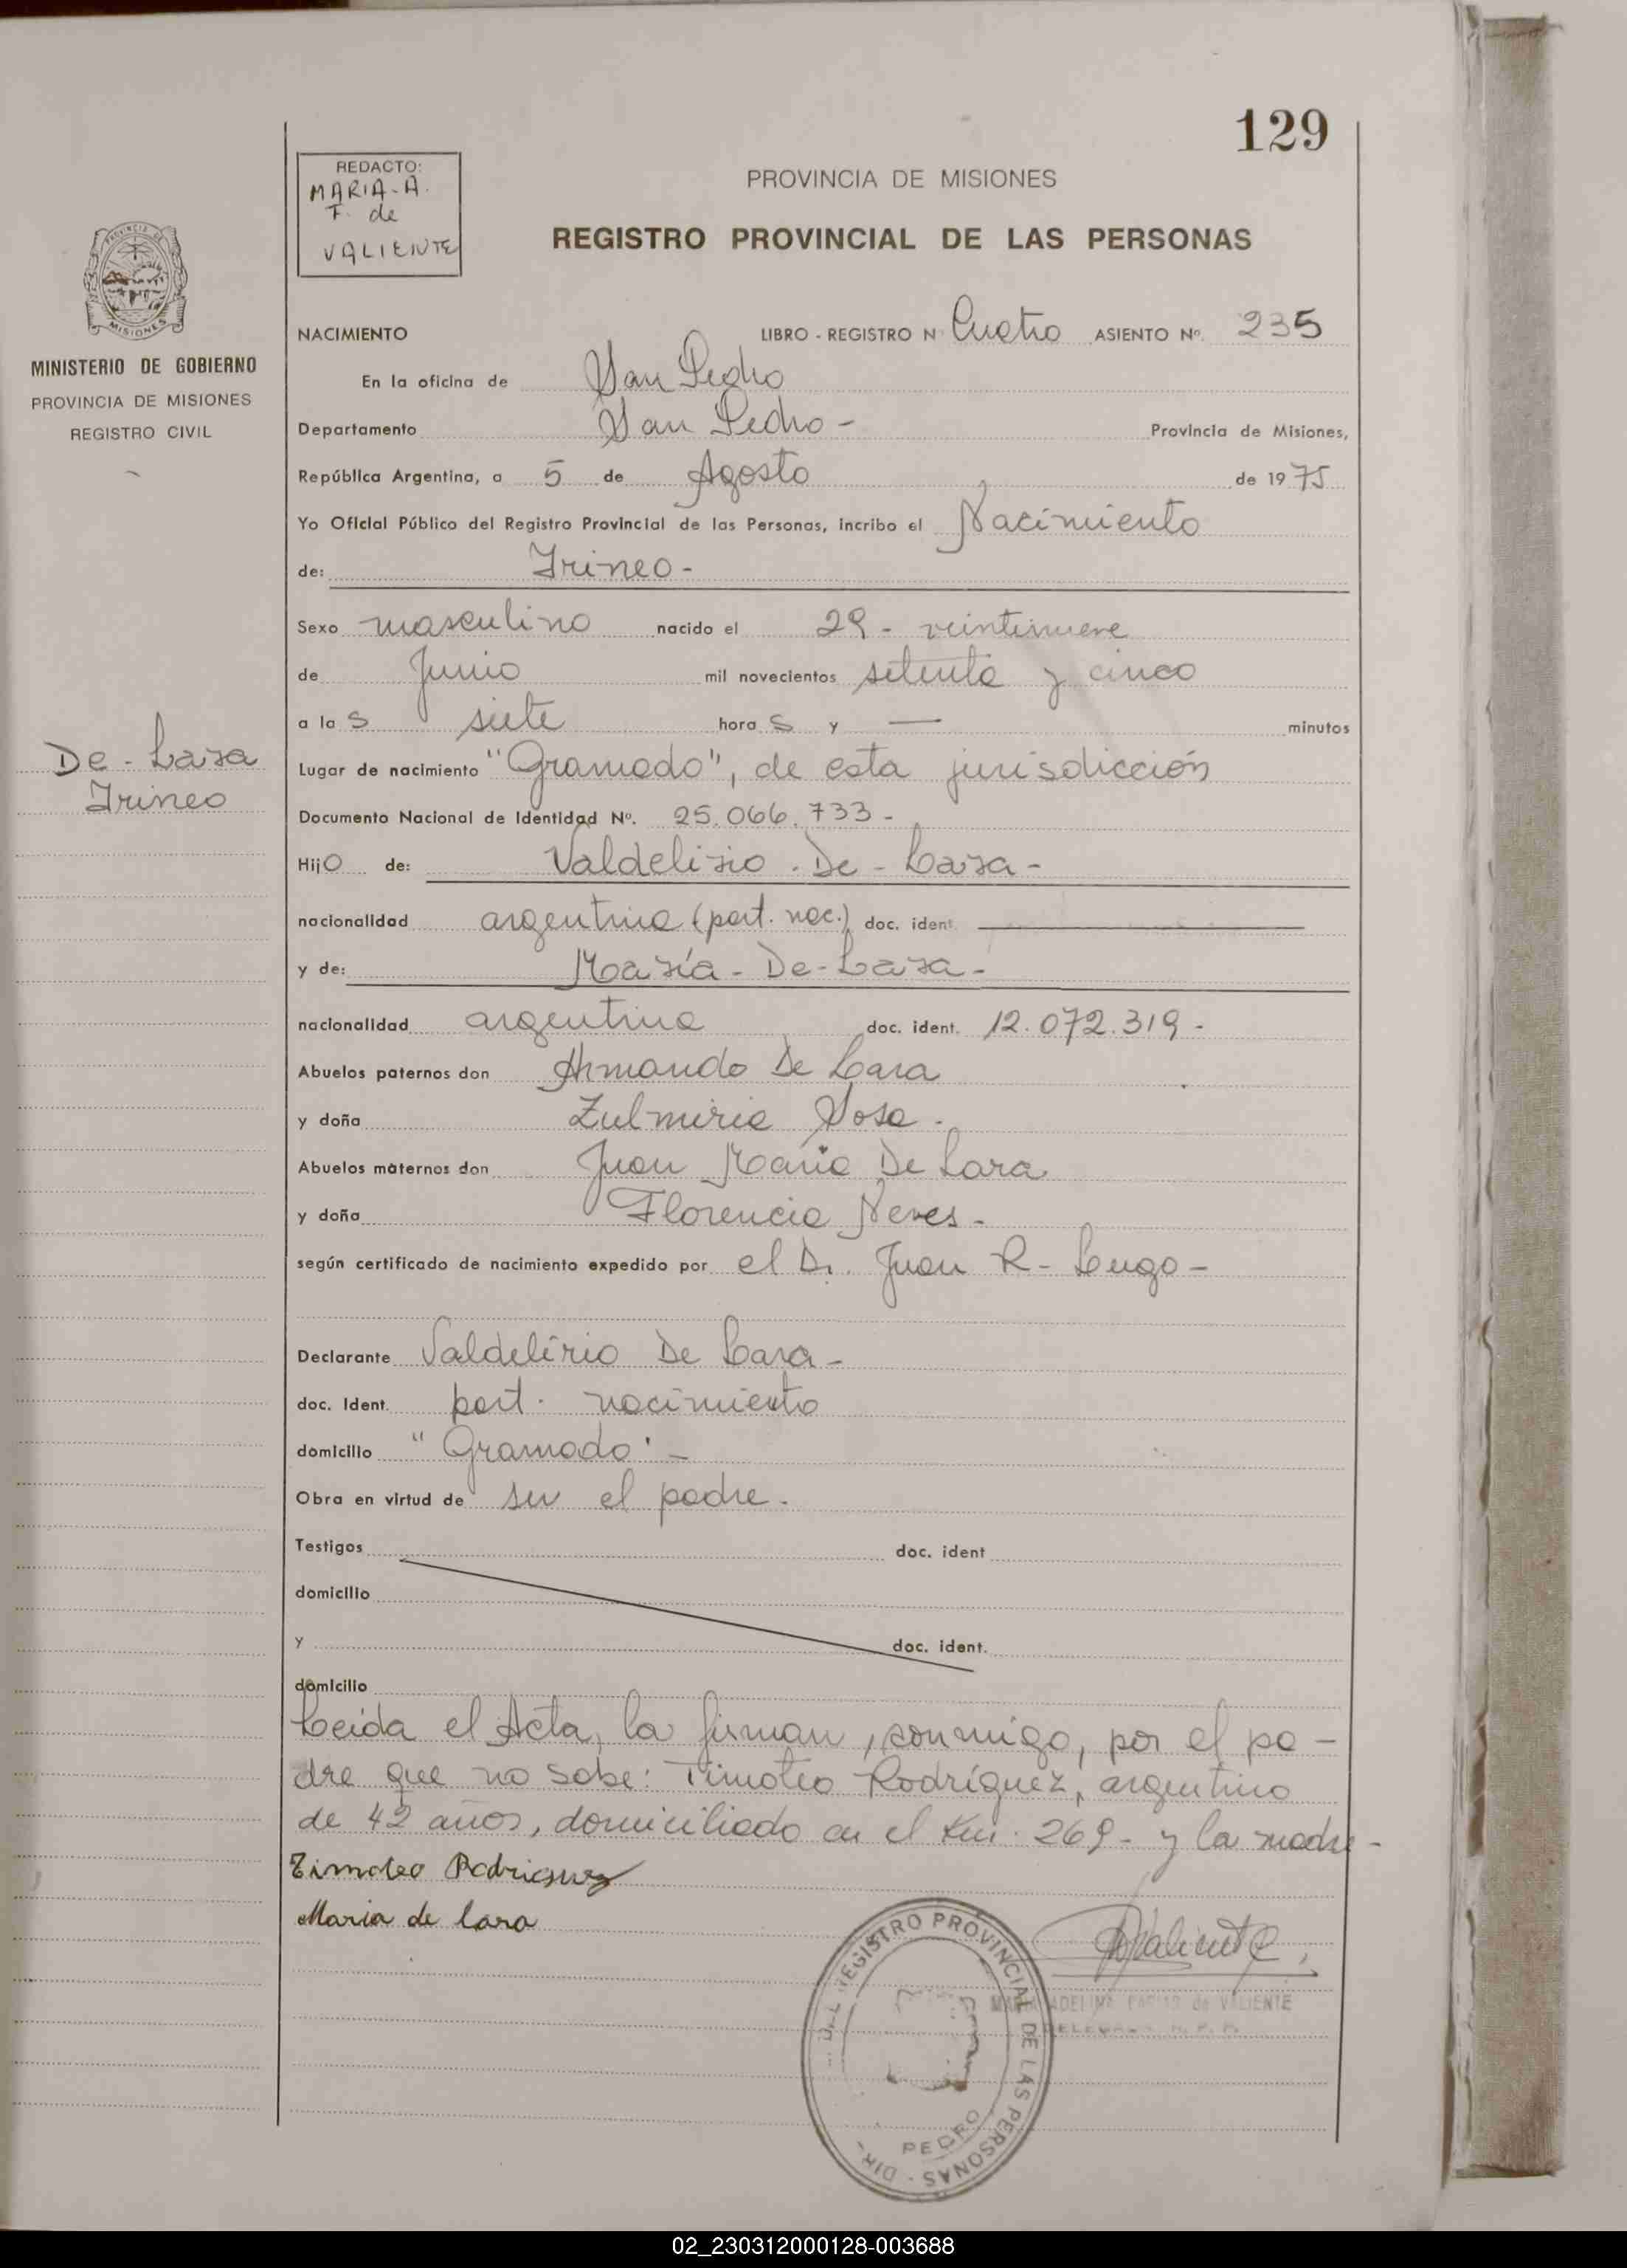 129
REDACTO:
MARIA-A.
F. de
VALIENTE
PROVINCIA DE MISIONES
REGISTRO PROVINCIAL DE LAS PERSONAS
MISIONES
MINISTERIO DE GOBIERNO
PROVINCIA DE MISIONES
REGISTRO CIVIL
NACIMIENTO LIBRO - REGISTRO N Cuatro ASIENTO Nº. 235
En la oficina de San Pedro
Departamento San Pedro - Provincia de Misiones,
República Argentina, a 5 de Agosto de 1975
Yo Oficial Público del Registro Provincial de las Personas, incribo el Nacimiento
de: Irineo -
Sexo masculino nacido el 29 - veintinueve
de Junio mil novecientos setenta y cinco
a las siete horas y — minutos
De - Lara
Irineo
Lugar de nacimiento "Gramado", de esta jurisdicción
Documento Nacional de Identidad Nº. 25.066.733 -
Hijo de: Valdelirio - De - Lara -
nacionalidad argentina (part. nac.) doc. ident
y de: María - De - Lara -
nacionalidad argentina doc. ident. 12.072.319 -
Abuelos paternos don Armando De Lara
y doña Zulmiria Sosa -
Abuelos maternos don Juan María De Lara
y doña Florencia Neves -
según certificado de nacimiento expedido por el Dr. Juan R - Lugo -
Declarante Valdelirio De Lara -
doc. Ident. part. nacimiento
domicilio "Gramado" -
Obra en virtud de ser el padre.
Testigos doc. ident
domicilio
y doc. ident.
domicilio
Leida el Acta, la firman, conmigo, por el pa -
dre que no sabe: Timoteo Rodríguez, argentino
de 42 años, domiciliado en el Km. 269 - y la madre -
Timoteo Rodriguez
Maria de Lara
AValiente
REGISTRO PROVINCIAL DE LAS PERSONAS - DIR.
PEDRO
MARIA ADELINA de VALIENTE
02_230312000128-003688